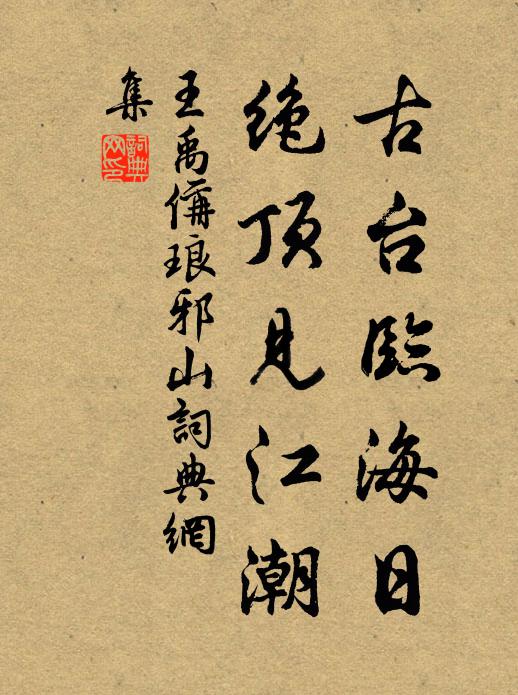 古台臨海日
绝顶見江潮
王禹偁琅邪山詞典網
集
詞典
网印